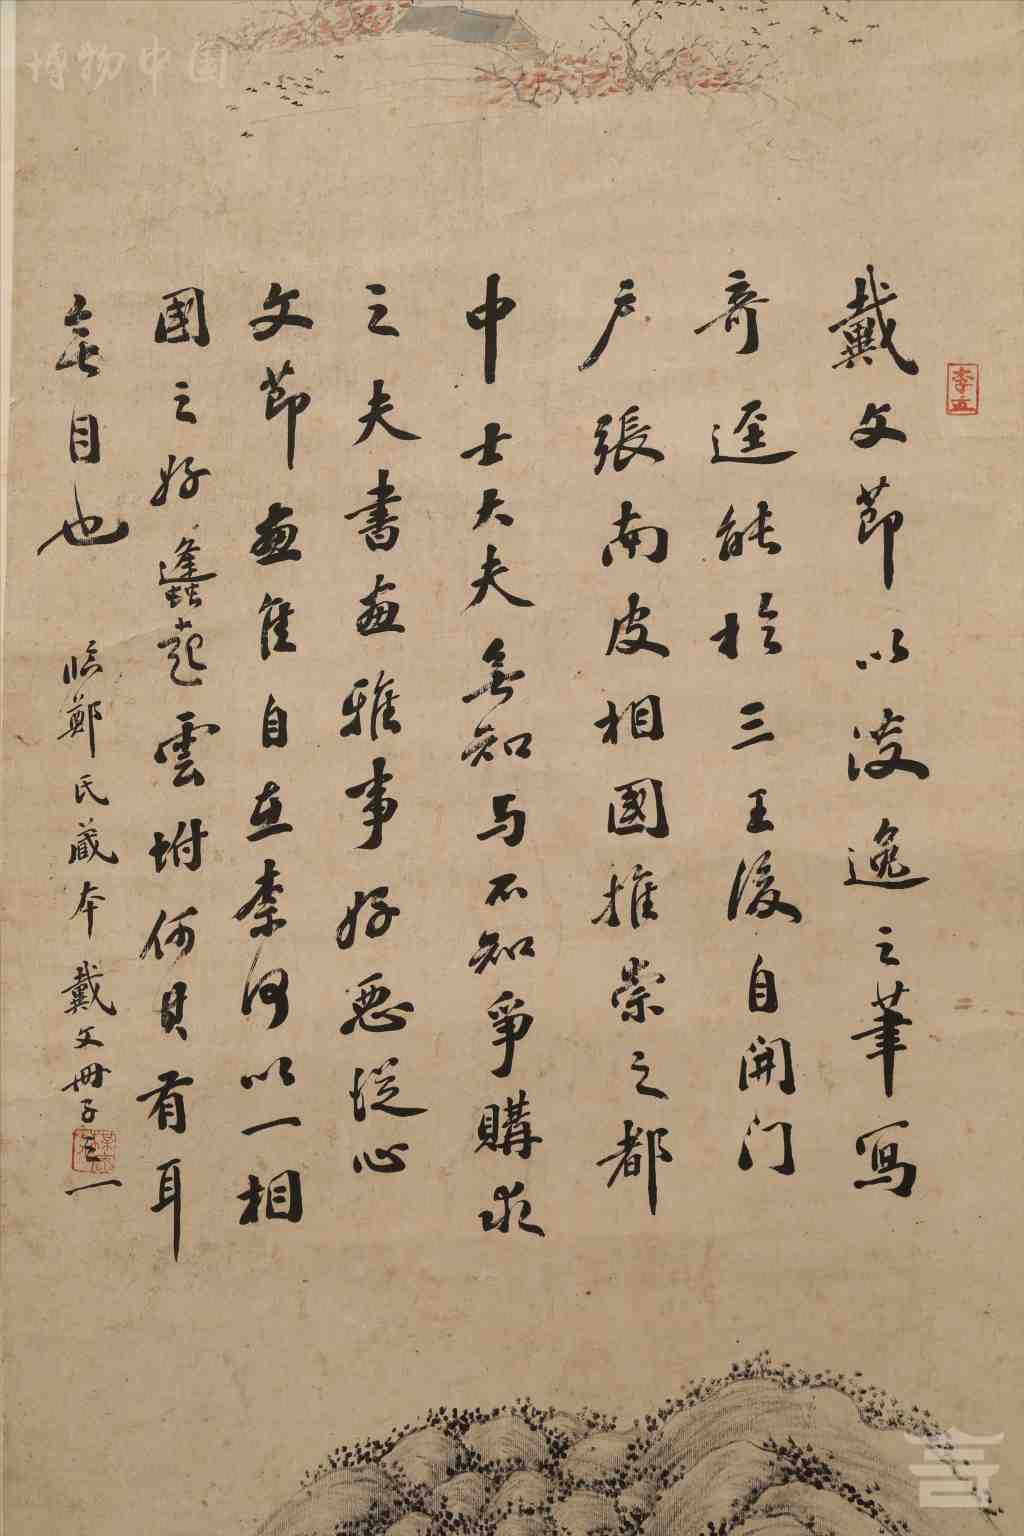 博物中国
李立
戴文節以逸之筆寫
奇逕能於三王後自開门
户張南皮相國推崇之都
中士大夫無知与不知爭購求
之夫書畫雅事好惡從心
文節畫隹自在柰何以一相
國之好蠭起雲坿何其有耳
無目也 臨鄭氏藏本戴文冊子